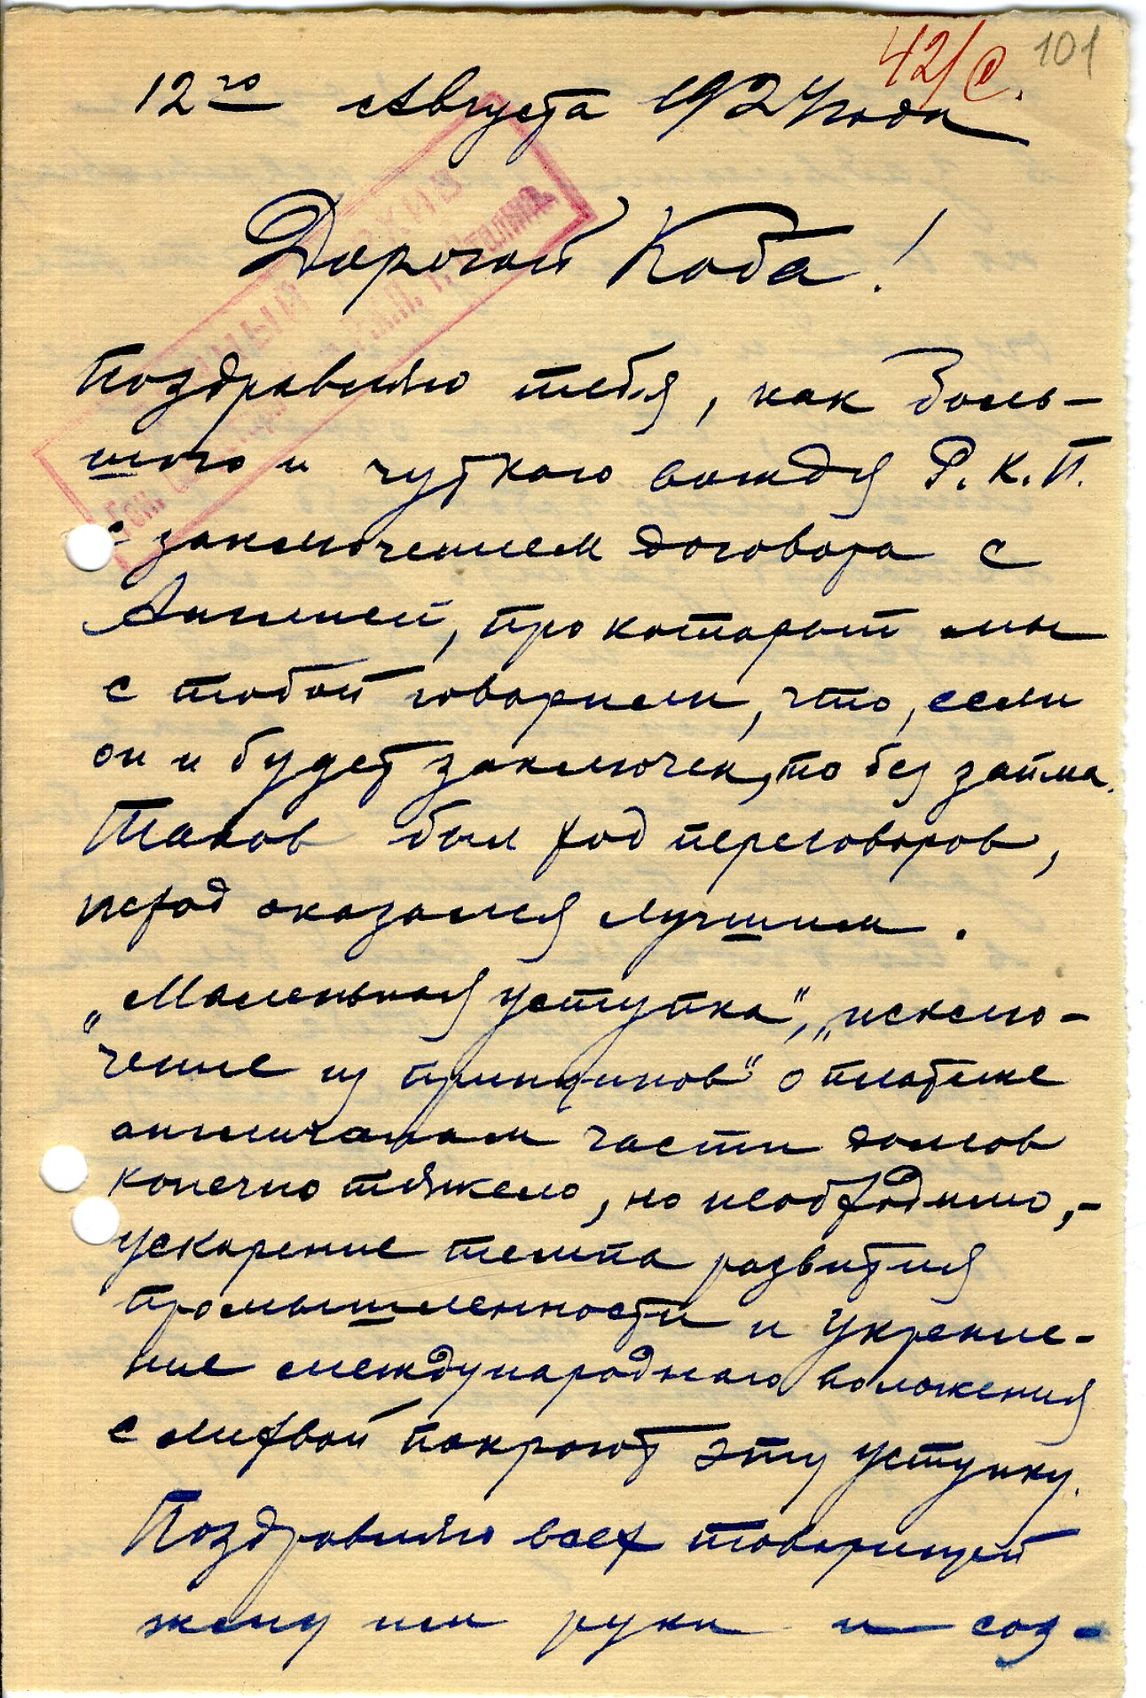 42/
101
12го Августа 1924 года
Дорогой Коба!
Поздравляю тебя, как боль-
шого и чуткого вождя Р.К.П.
с заключением договора с
Англией, про который мы
с тобой говорили, что, если
он и будет заключен, то без займа.
Таков был ход переговоров,
исход оказался лучшим.
„Маленькая уступка", „исклю-
чение из принципов" о платеже
англичанам части долгов
конечно тяжело, но необходимо,-
ускорение темпа развития
промышленности и укрепле-
ние международного положения
с лихвой покроют эту уступку.
Поздравляю всех товарищей
жму им руки и соз-